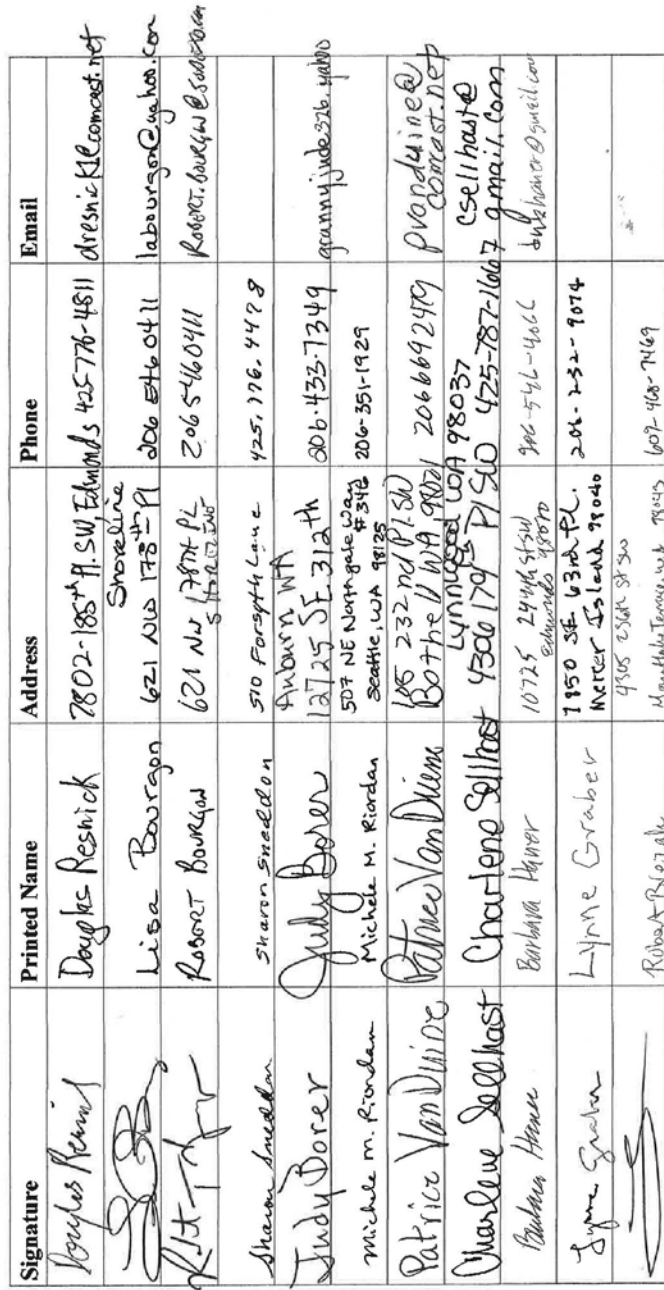 Signature Printed Name Address Phone Email
Douglas Resnick Douglas Resnick 7802-185th Pl. SW, Edmonds 425-776-4811 dresnick1@comcast.net
Lisa Bourgon Shoreline 621 NW 178th Pl 206 546 0411 labourgon@yahoo.com
ROBERT BOURGON 621 NW 178TH PL SHORELINE 206 546 0411
Sharon Sneddon Sharon Sneddon 510 Forsyth Lane 425.776.4478
Judy Borer Judy Borer Auburn WA 12725 SE 312th 206-433-7349 grannyjude326.yahoo
Michele M. Riordan Michele M. Riordan 507 NE Northgate Way #346 Seattle, WA 98125 206-351-1929
Patrice VanDuine Patrice VanDuine 105 232nd Pl. SW Bothell WA 98021 2066692479 pvanduine@comcast.net
Charlene Sellhast Charlene Sellhast Lynnwood WA 98037 4306 179th Pl SW 425-787-1667 csellhast@gmail.com
Barbara Haner Barbara Haner 10725 244th St SW Edmonds 98020 206-546-4066
Lynne Graber Lynne Graber 7850 SE 63rd Pl. Mercer Island 98040 206-232-9074
Robert 4305 236th St SW Mountlake Terrace, wa 98043 609-468-7469